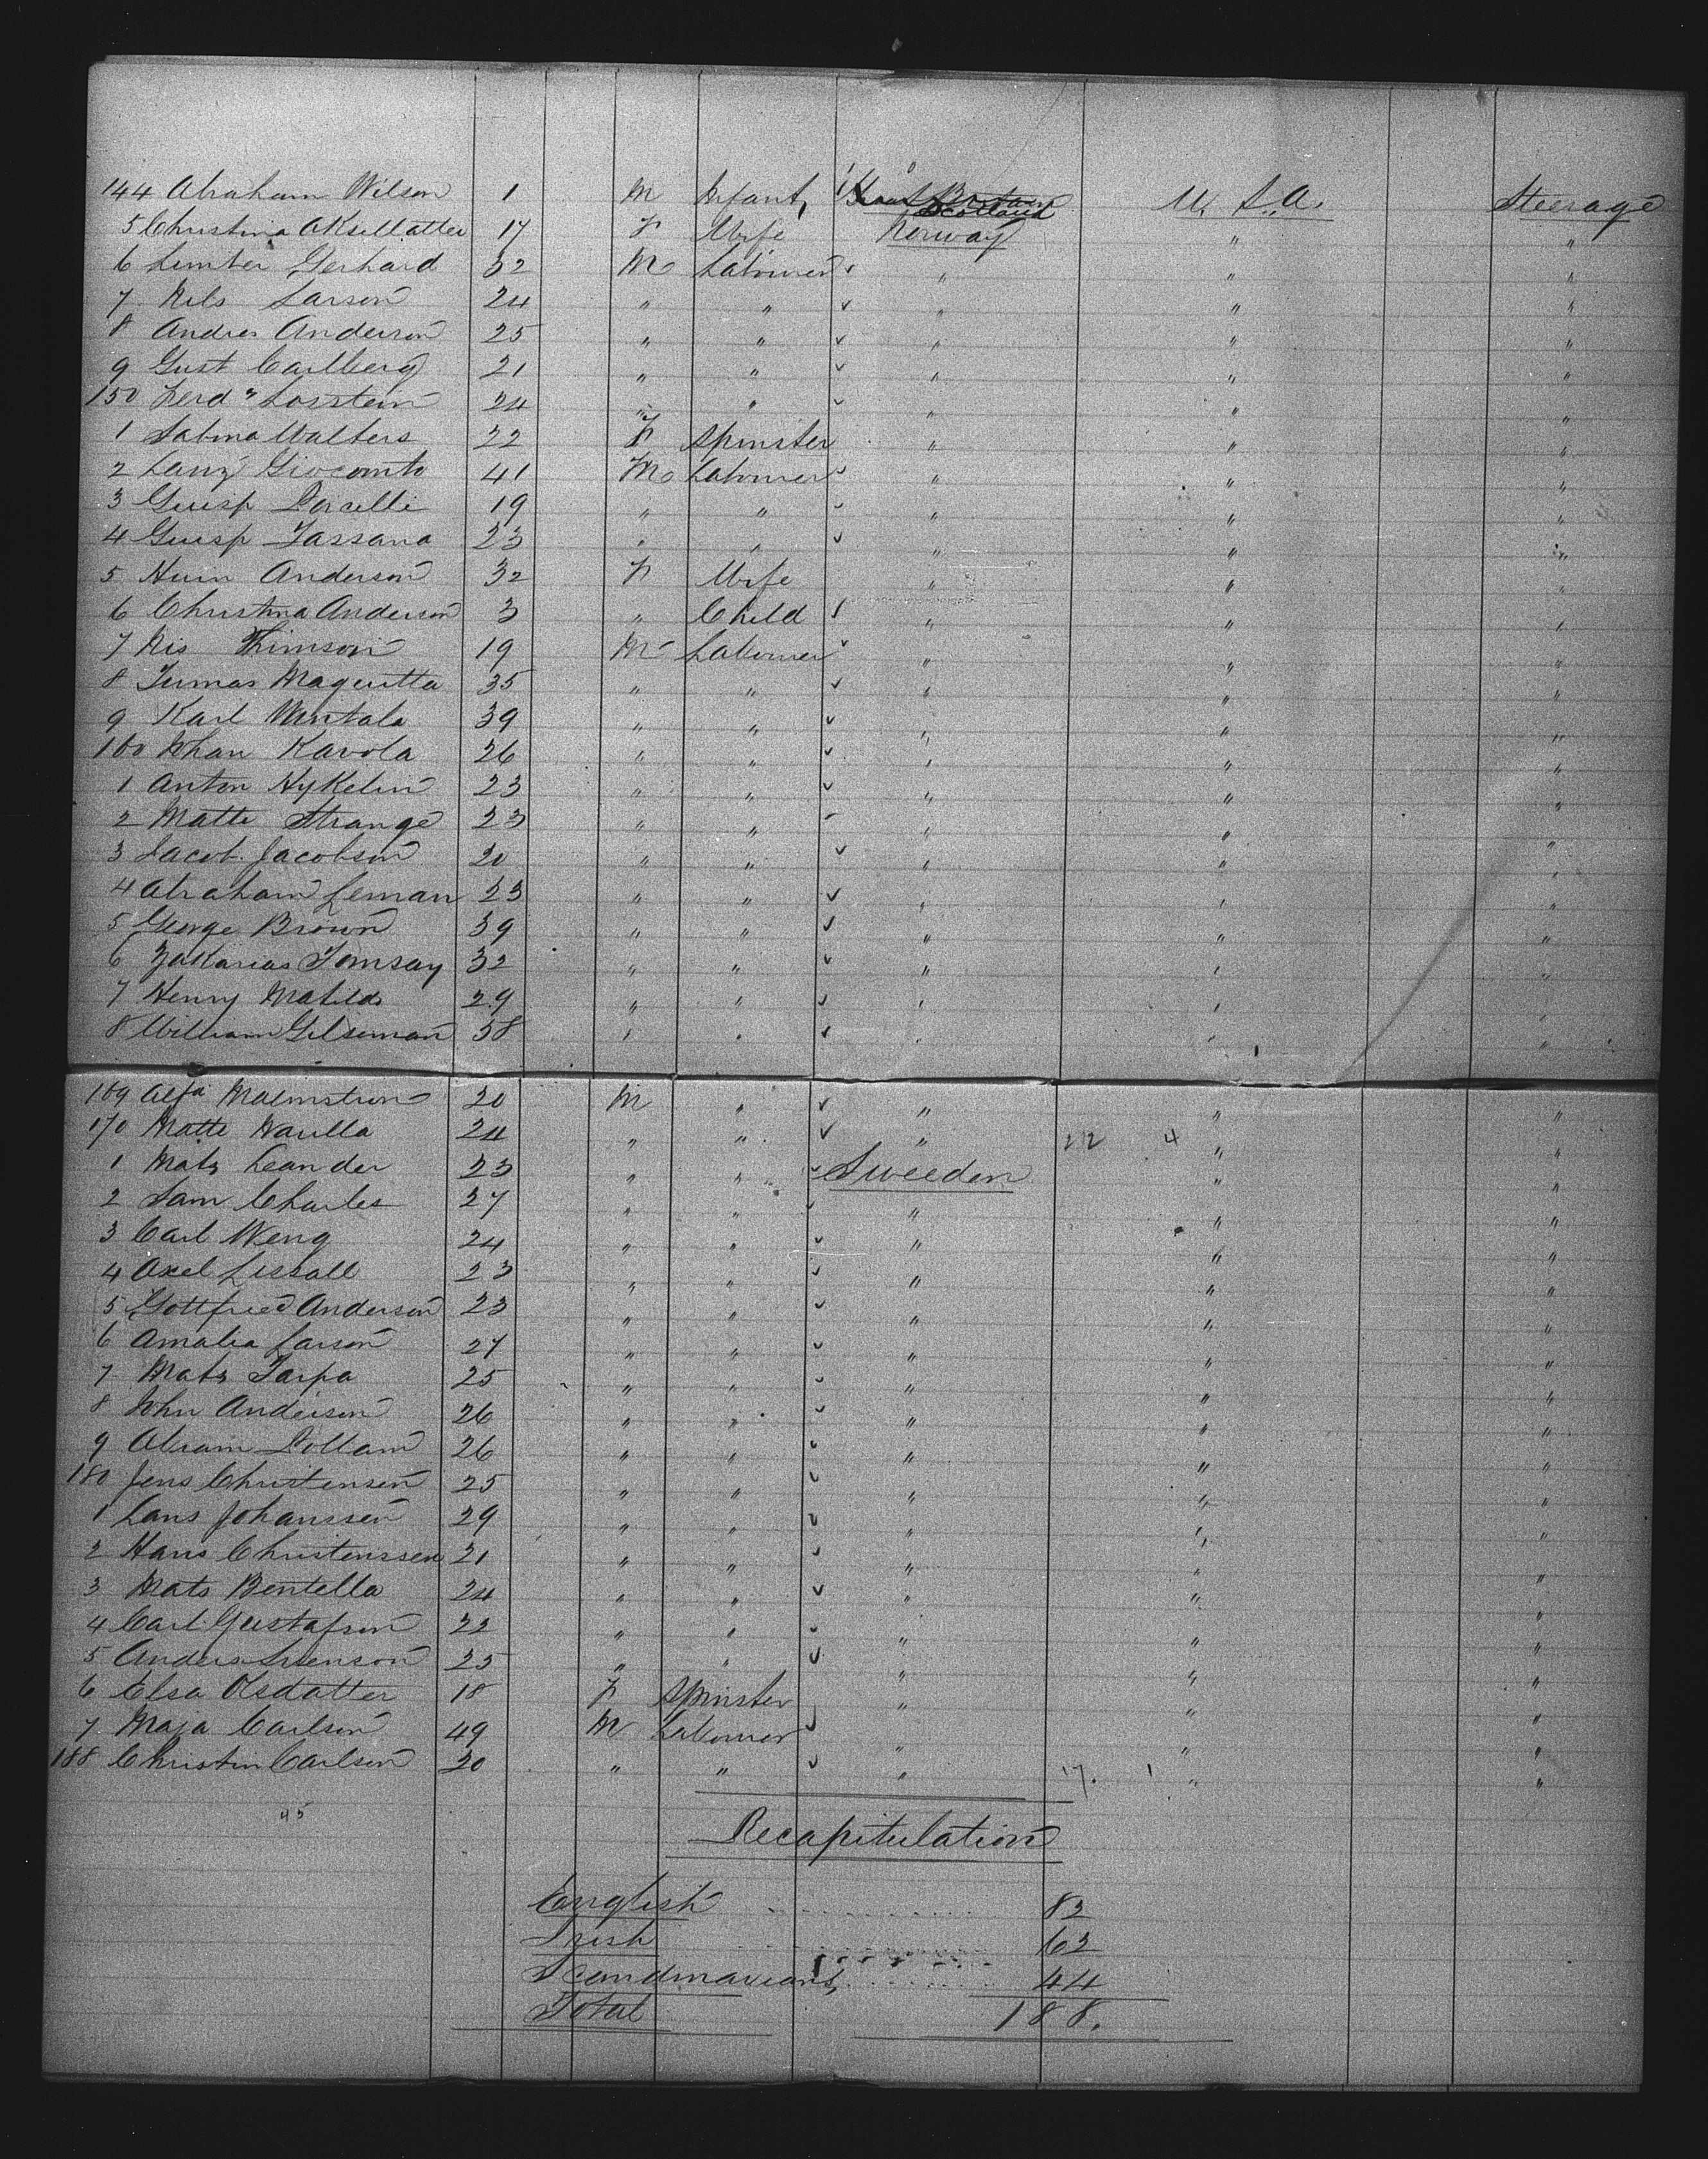 144 Abraham Wilson 1 M Infant, Great Britain Scotland U. S. A. Steerage
5 Christina Aksellatter 17 F Wife Norway " "
6 Limber Gerhard 32 M Labourer " " "
7 Nils Larson 24 " " " " "
8 Andres Anderson 25 " " " " "
9 Gust Carlberg 21 " " " " "
150 Ferd " 24 " " " " "
1 Salma Walters 22 F Spinster " " "
2 Giocomto 41 M Labourer " " "
3 Guisp 19 " " " " "
4 Guisp Tassana 23 " " " " "
5 Anderson 32 F Wife " " "
6 Christina Anderson 3 " Child " " "
7 Nis Thimson 19 M Labourer " " "
8 Tumas Magutta 35 " " " " "
9 Karl Wintala 39 " " " " "
160 Johan Kavola 26 " " " " "
1 Anton Nykelin 23 " " " " "
2 Matte Strange 23 " " " " "
3 Jacob Jacobson 20 " " " " "
4 Abraham Leman 23 " " " " "
5 George Brown 39 " " " " "
6 Zakarias Tomsay 32 " " " " "
7 Henry Matilds 29 " " " " "
8 William Gilseman 38 " " " " "
169 Alfa Malmstrom 20 M " " " "
170 Matte Warilla 24 " " " 22 4 " "
1 Mats Leander 23 " " Sweeden " "
2 Sam Charles 27 " " " " "
3 Carl Weng 24 " " " " "
4 Axel Lissall 23 " " " " "
5 Gottfried Anderson 23 " " " " "
6 Amalia Larson 27 " " " " "
7 Mats Tarpa 25 " " " " "
8 John Anderson 26 " " " " "
9 Abram Dollam 26 " " " " "
180 Jens Christensen 25 " " " " "
1 Lans Johanssen 29 " " " " "
2 Hans Christenssen 21 " " " " "
3 Mats Bentella 24 " " " " "
4 Carl Gustafson 22 " " " " "
5 Anders Svenson 25 " " " " "
6 Elsa Olsdatter 18 F Spinster " " "
7 Maja Carlson 49 M Labourer " " "
188 Christin Carlson 20 " " " 17. 1 " "
45
Recapitulation
English 82
Irish 62
Scandinavians, 44
Total 188.